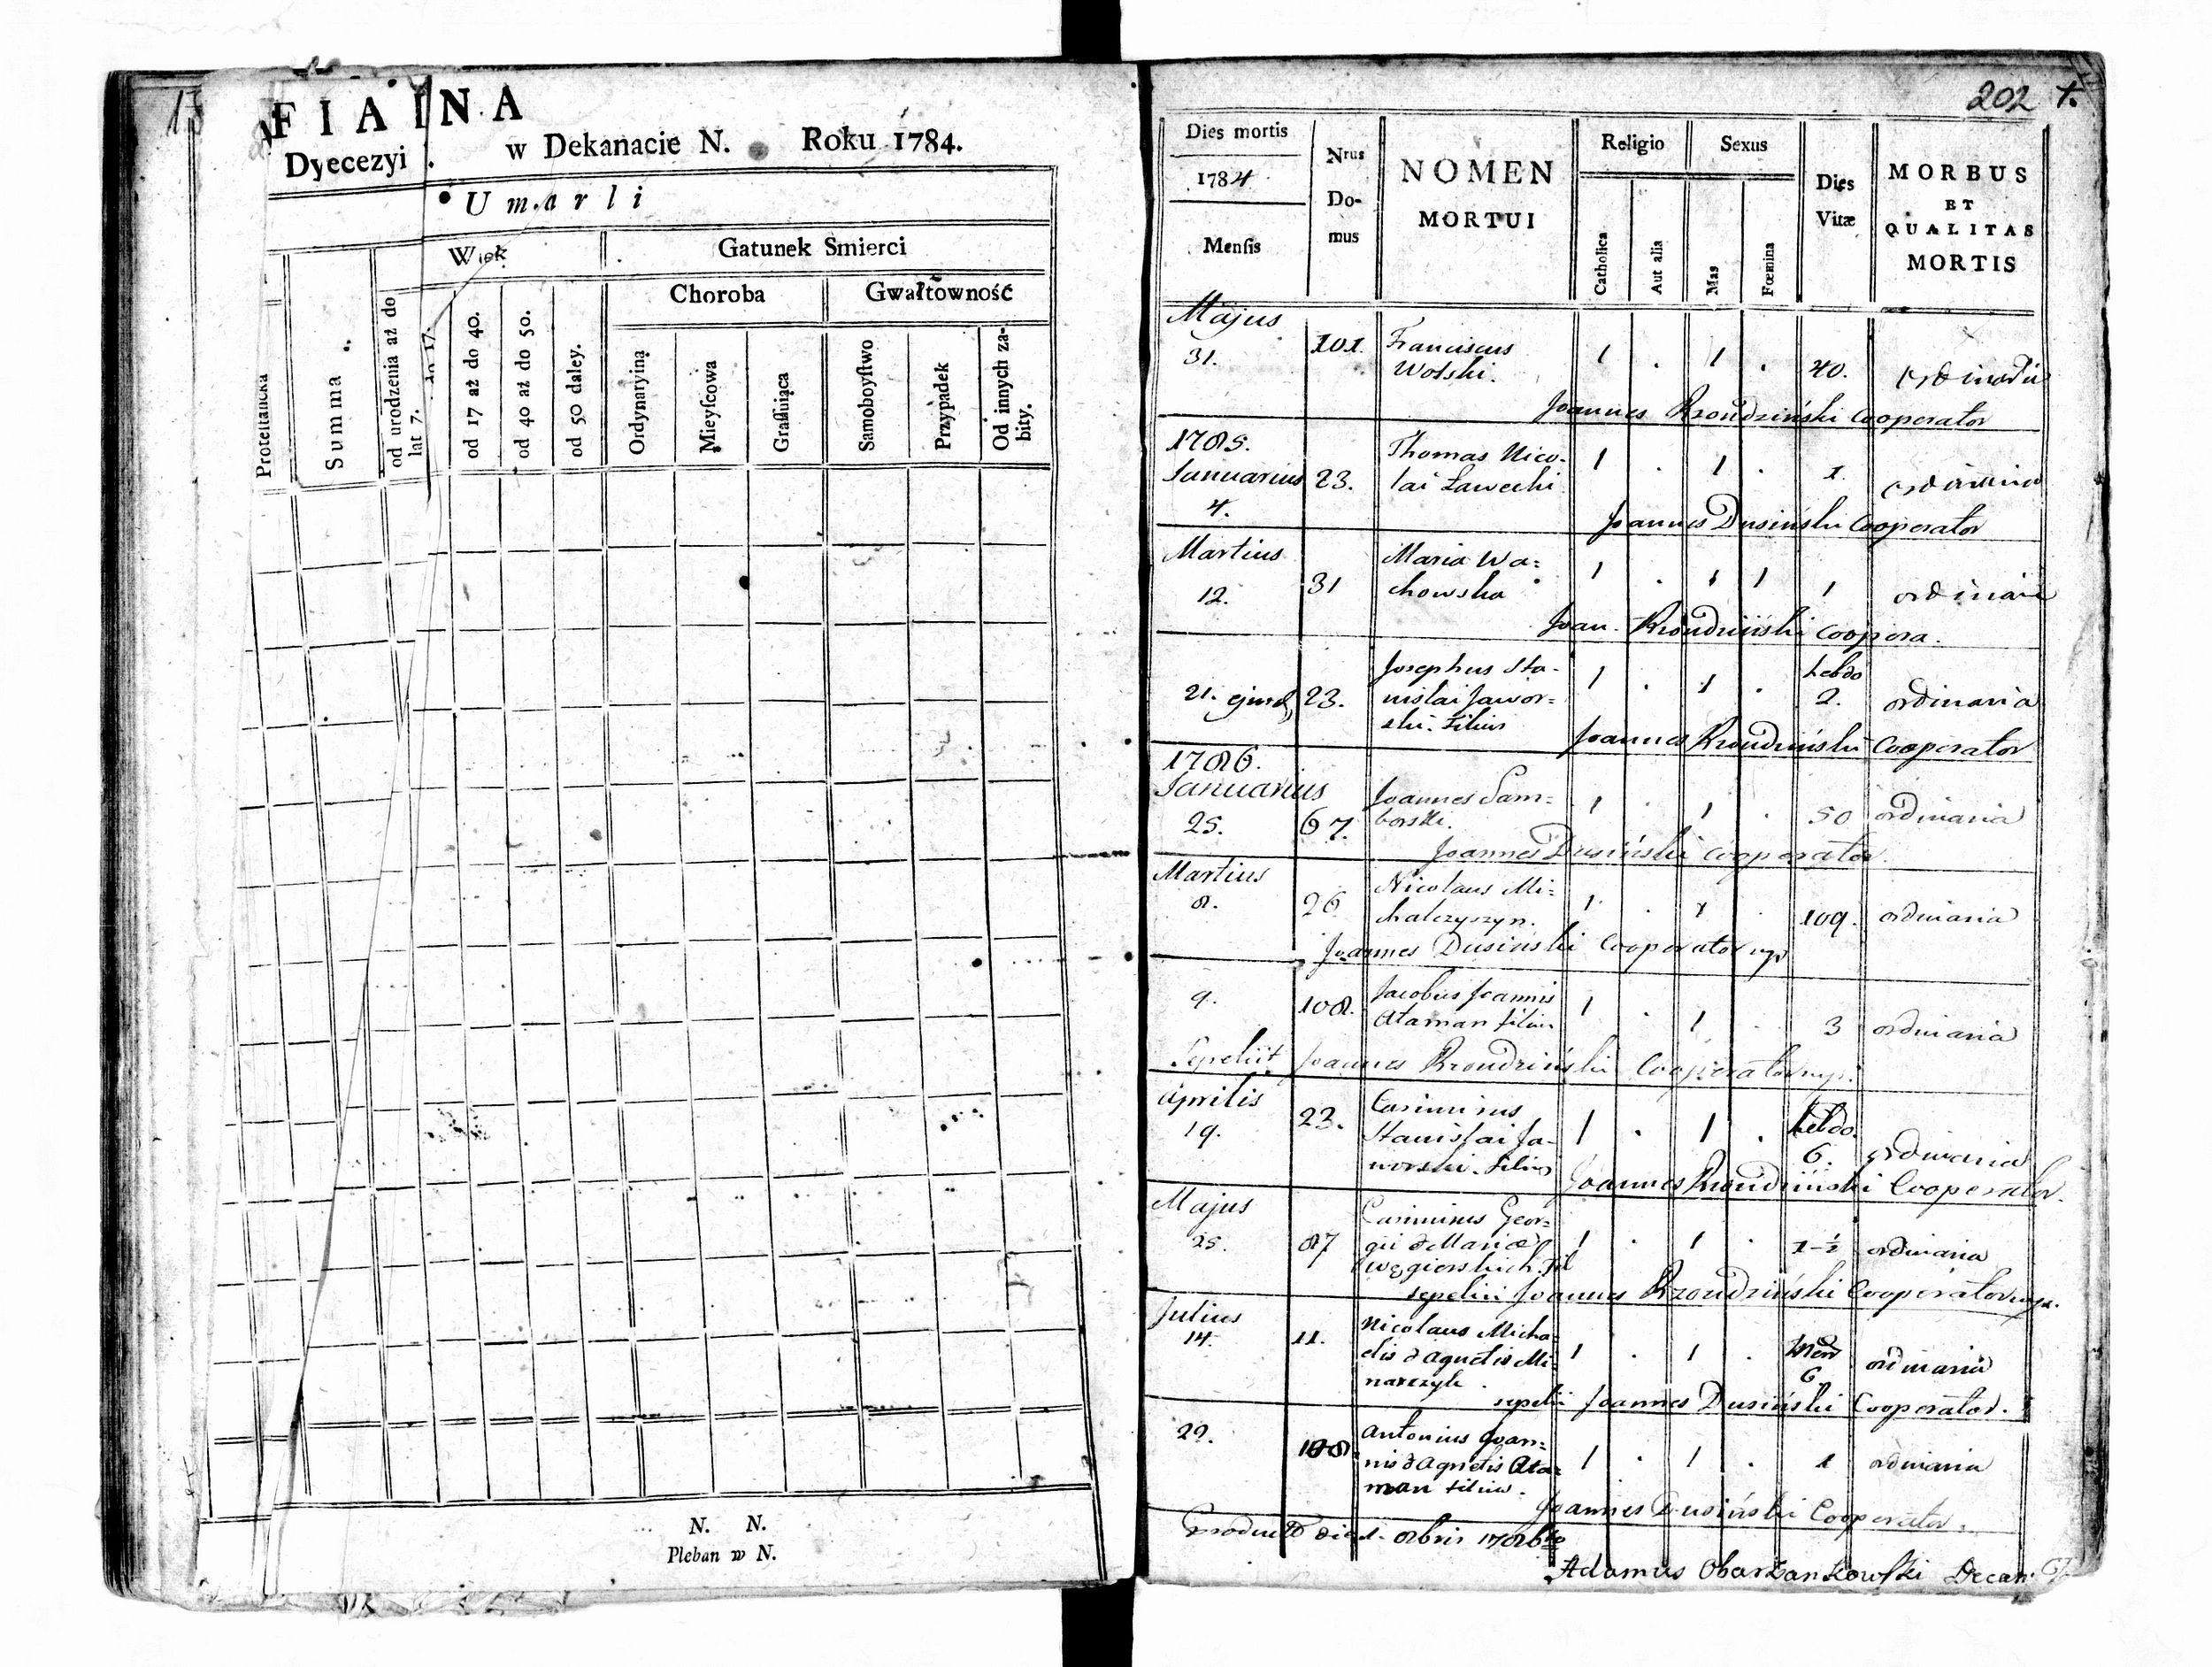 FIALNA
Dyecezyi . w Dekanacie N. Roku 1784.
Umarli
Wiek
Gatunek Smierci
Choroba
Gwałtowność
Protestancka
Summa
od urodzenia aż do lat 7.
do 17.
od 17 aż do 40.
od 40 aż do 50.
od 50 daley.
Ordynaryina
Mieyſcowa
Graſſuiąca
Samoboyſtwo
Przypadek
Od innych zabity.
N. N.
Pleban w N.
202
Dies mortis
1784
Menſis
Nrus
Do-
mus
NOMEN
MORTUI
Religio
Catholica
Aut alia
Sexus
Mas
Fœmina
Dies
Vitæ
MORBUS
ET
QUALITAS
MORTIS
Majus
31. 101. Franciscus
Wolski. 1 . 1 . 40. ordinaria
Joannes Rzondziński Cooperator
1785.
Januarius 23. Thomas Nico-
lai Zawecki 1 . 1 . 1. ordinaria
4.
Joannes Dusiński Cooperator
Martius
12. 31 Maria Wa=
chowska 1 . 1 1 1 ordinaria
Joan. Rzondziński Coopera.
21. ejusd 23. Josephus Sta-
nislai Jawor=
ski. Filius 1 . 1 . hebdo
2. ordinaria
Joannes Rzondziński Cooperator
1786.
Januarius
25. 67. Joannes Sam=
borski. 1 . 1 . 50 ordinaria
Joannes Dusiński Cooperator.
Martius
8. 26 Nicolaus Mi=
chalczyszyn. 1. . 1 . 109. ordinaria
Joannes Dusiński Cooperator mp
9. 108. Jacobus Joannis
Ataman filius 1 . 1 . 3 ordinaria
Sepeliit Joannes Rzondziński Cooperator mp.
Aprilis
19. 23. Casimirus
Stanislai Ja-
worski. Filius 1 . 1 . hebdo.
6. ordinaria
Joannes Rzondziński Cooperator.
Majus
25. 87 Casimirus Geor=
gii & Mariæ
Węgierskich. fil 1 . 1 . 1-½ ordinaria
sepelivi Joannes Rzondziński Cooperator mp.
Julius
14. 11. Nicolaus Micha=
elis & Agnetis Mi=
narczyk . 1 . 1 . Men
6 ordinaria
sepelii Joannes Dusiński Cooperator.
22. 108. Antonius Joan=
nis & Agnetis Ata=
man filius. 1 . 1 . 1 ordinaria
Joannes Dusiński Cooperator.
8bris 1786
Adamus Obarzankowſki Decan: